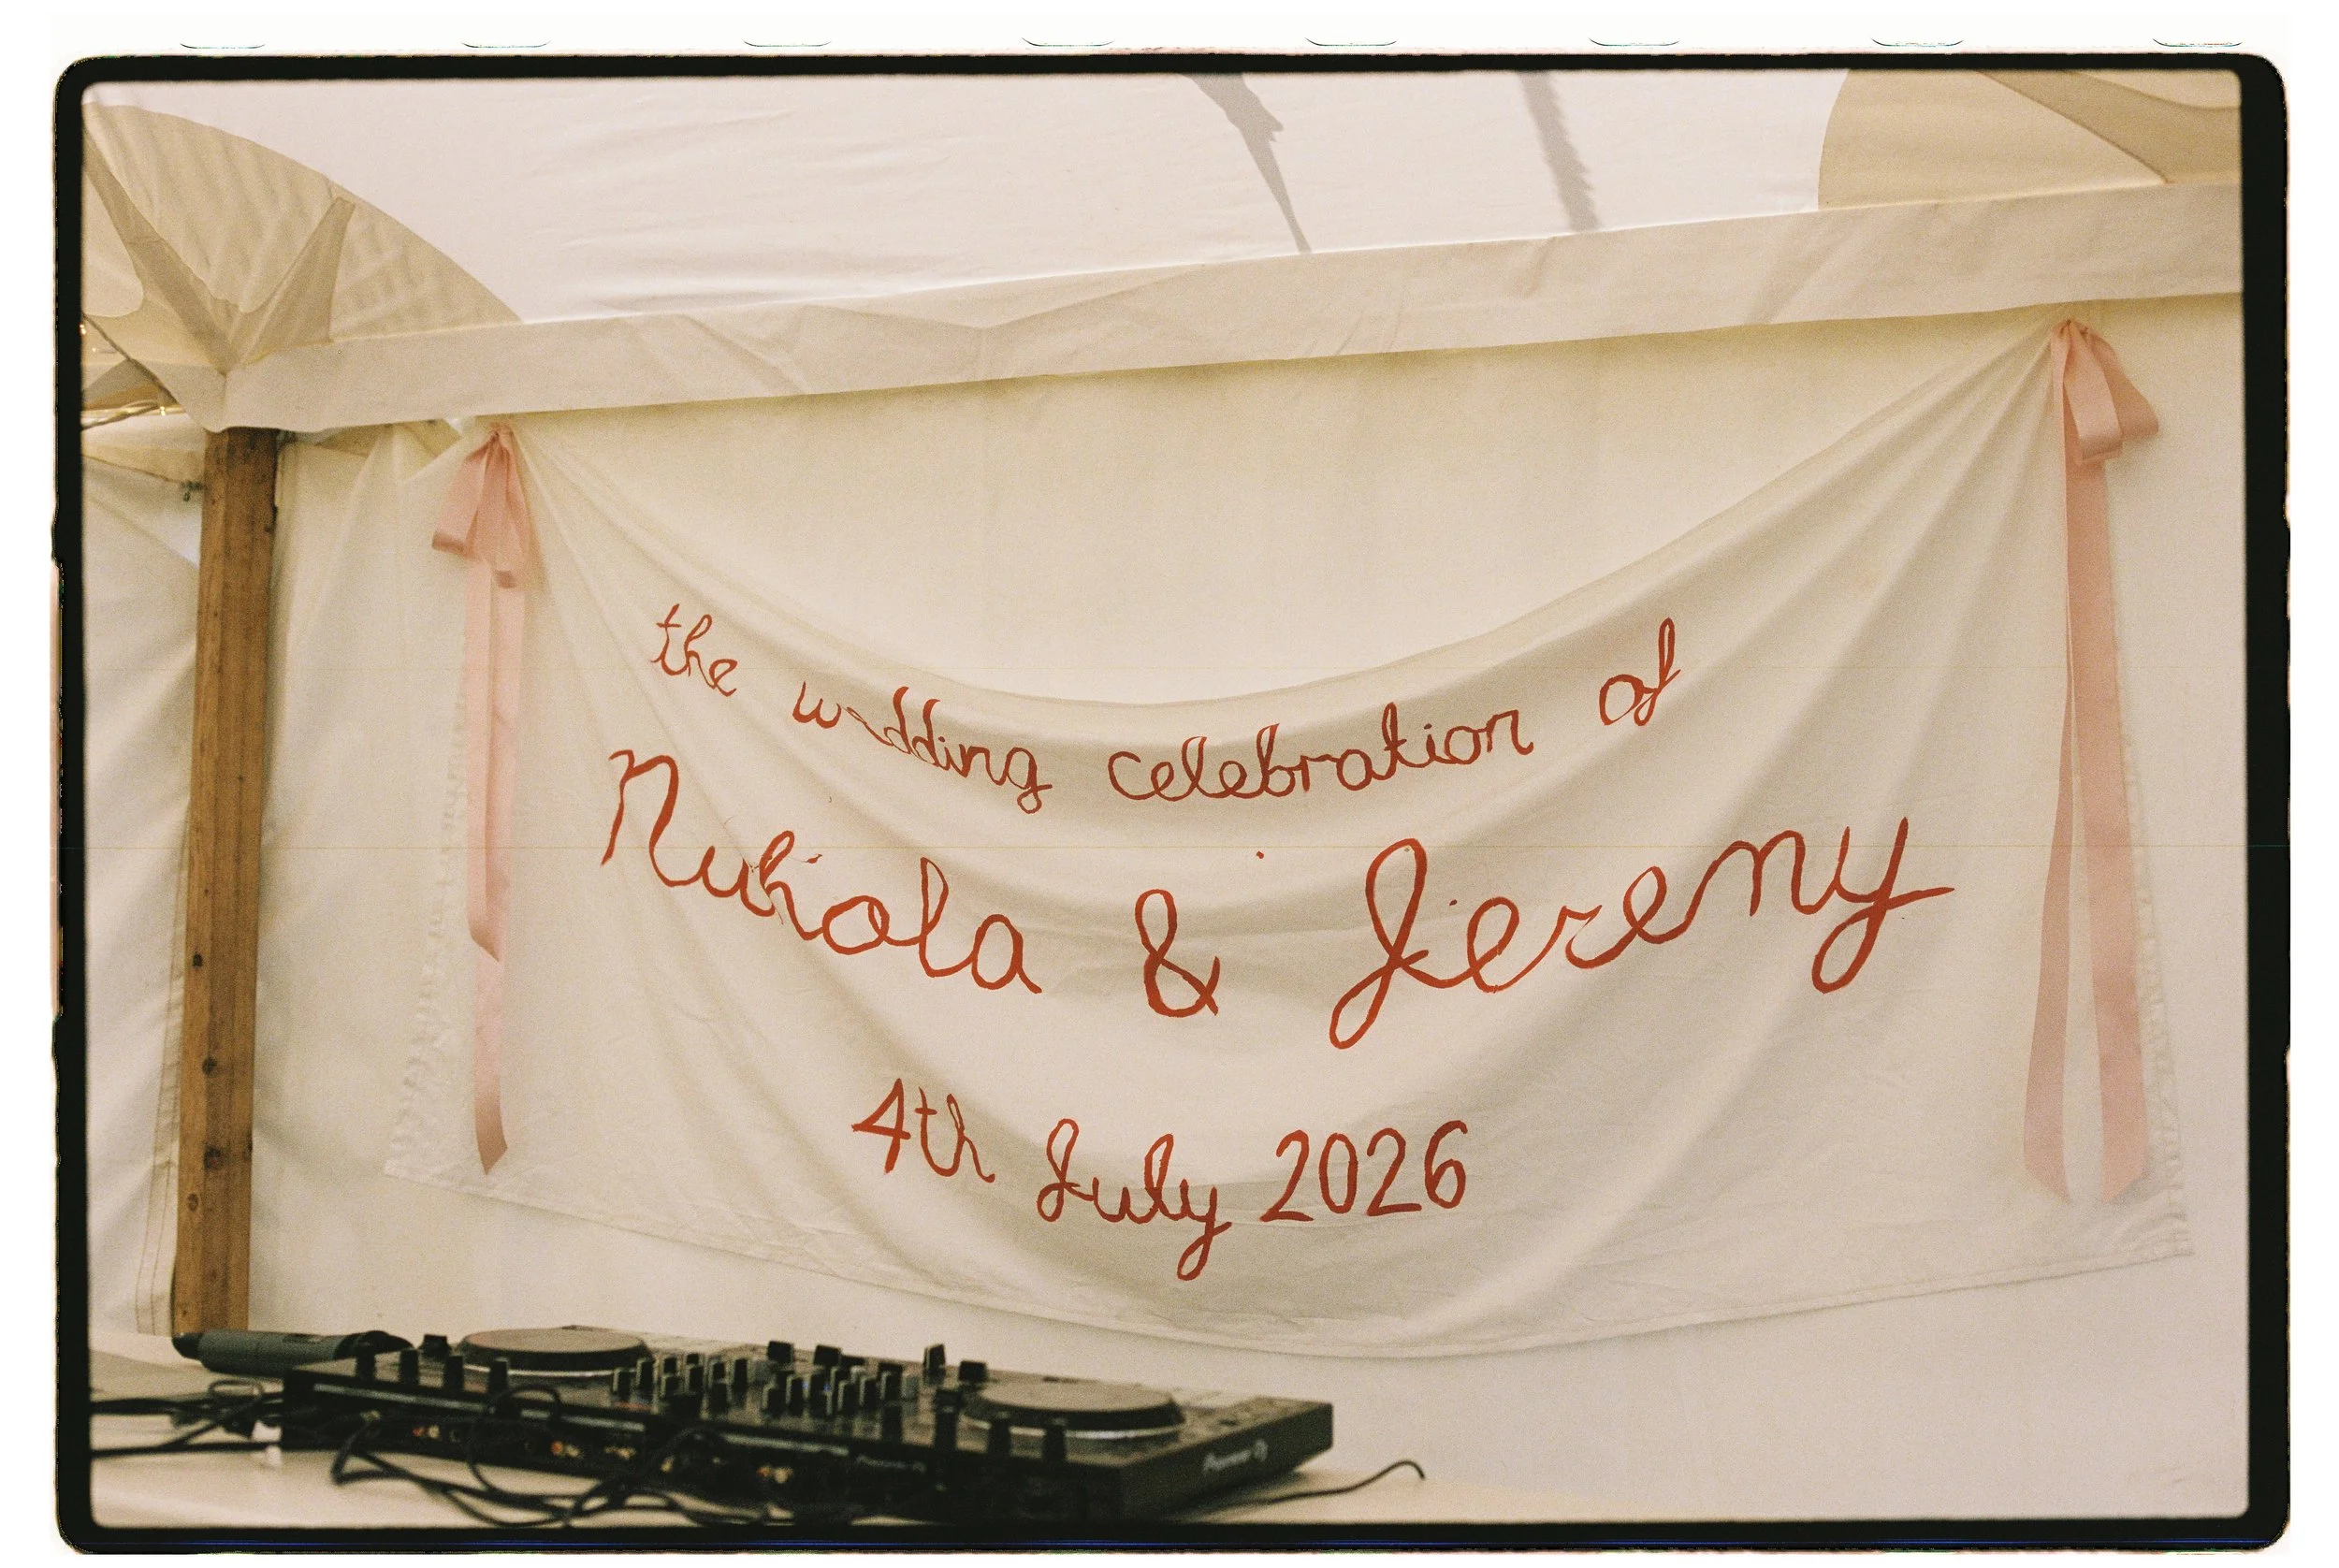 the wedding celebration of
Nikola & Jeremy
4th July 2026
Pioneer DJ